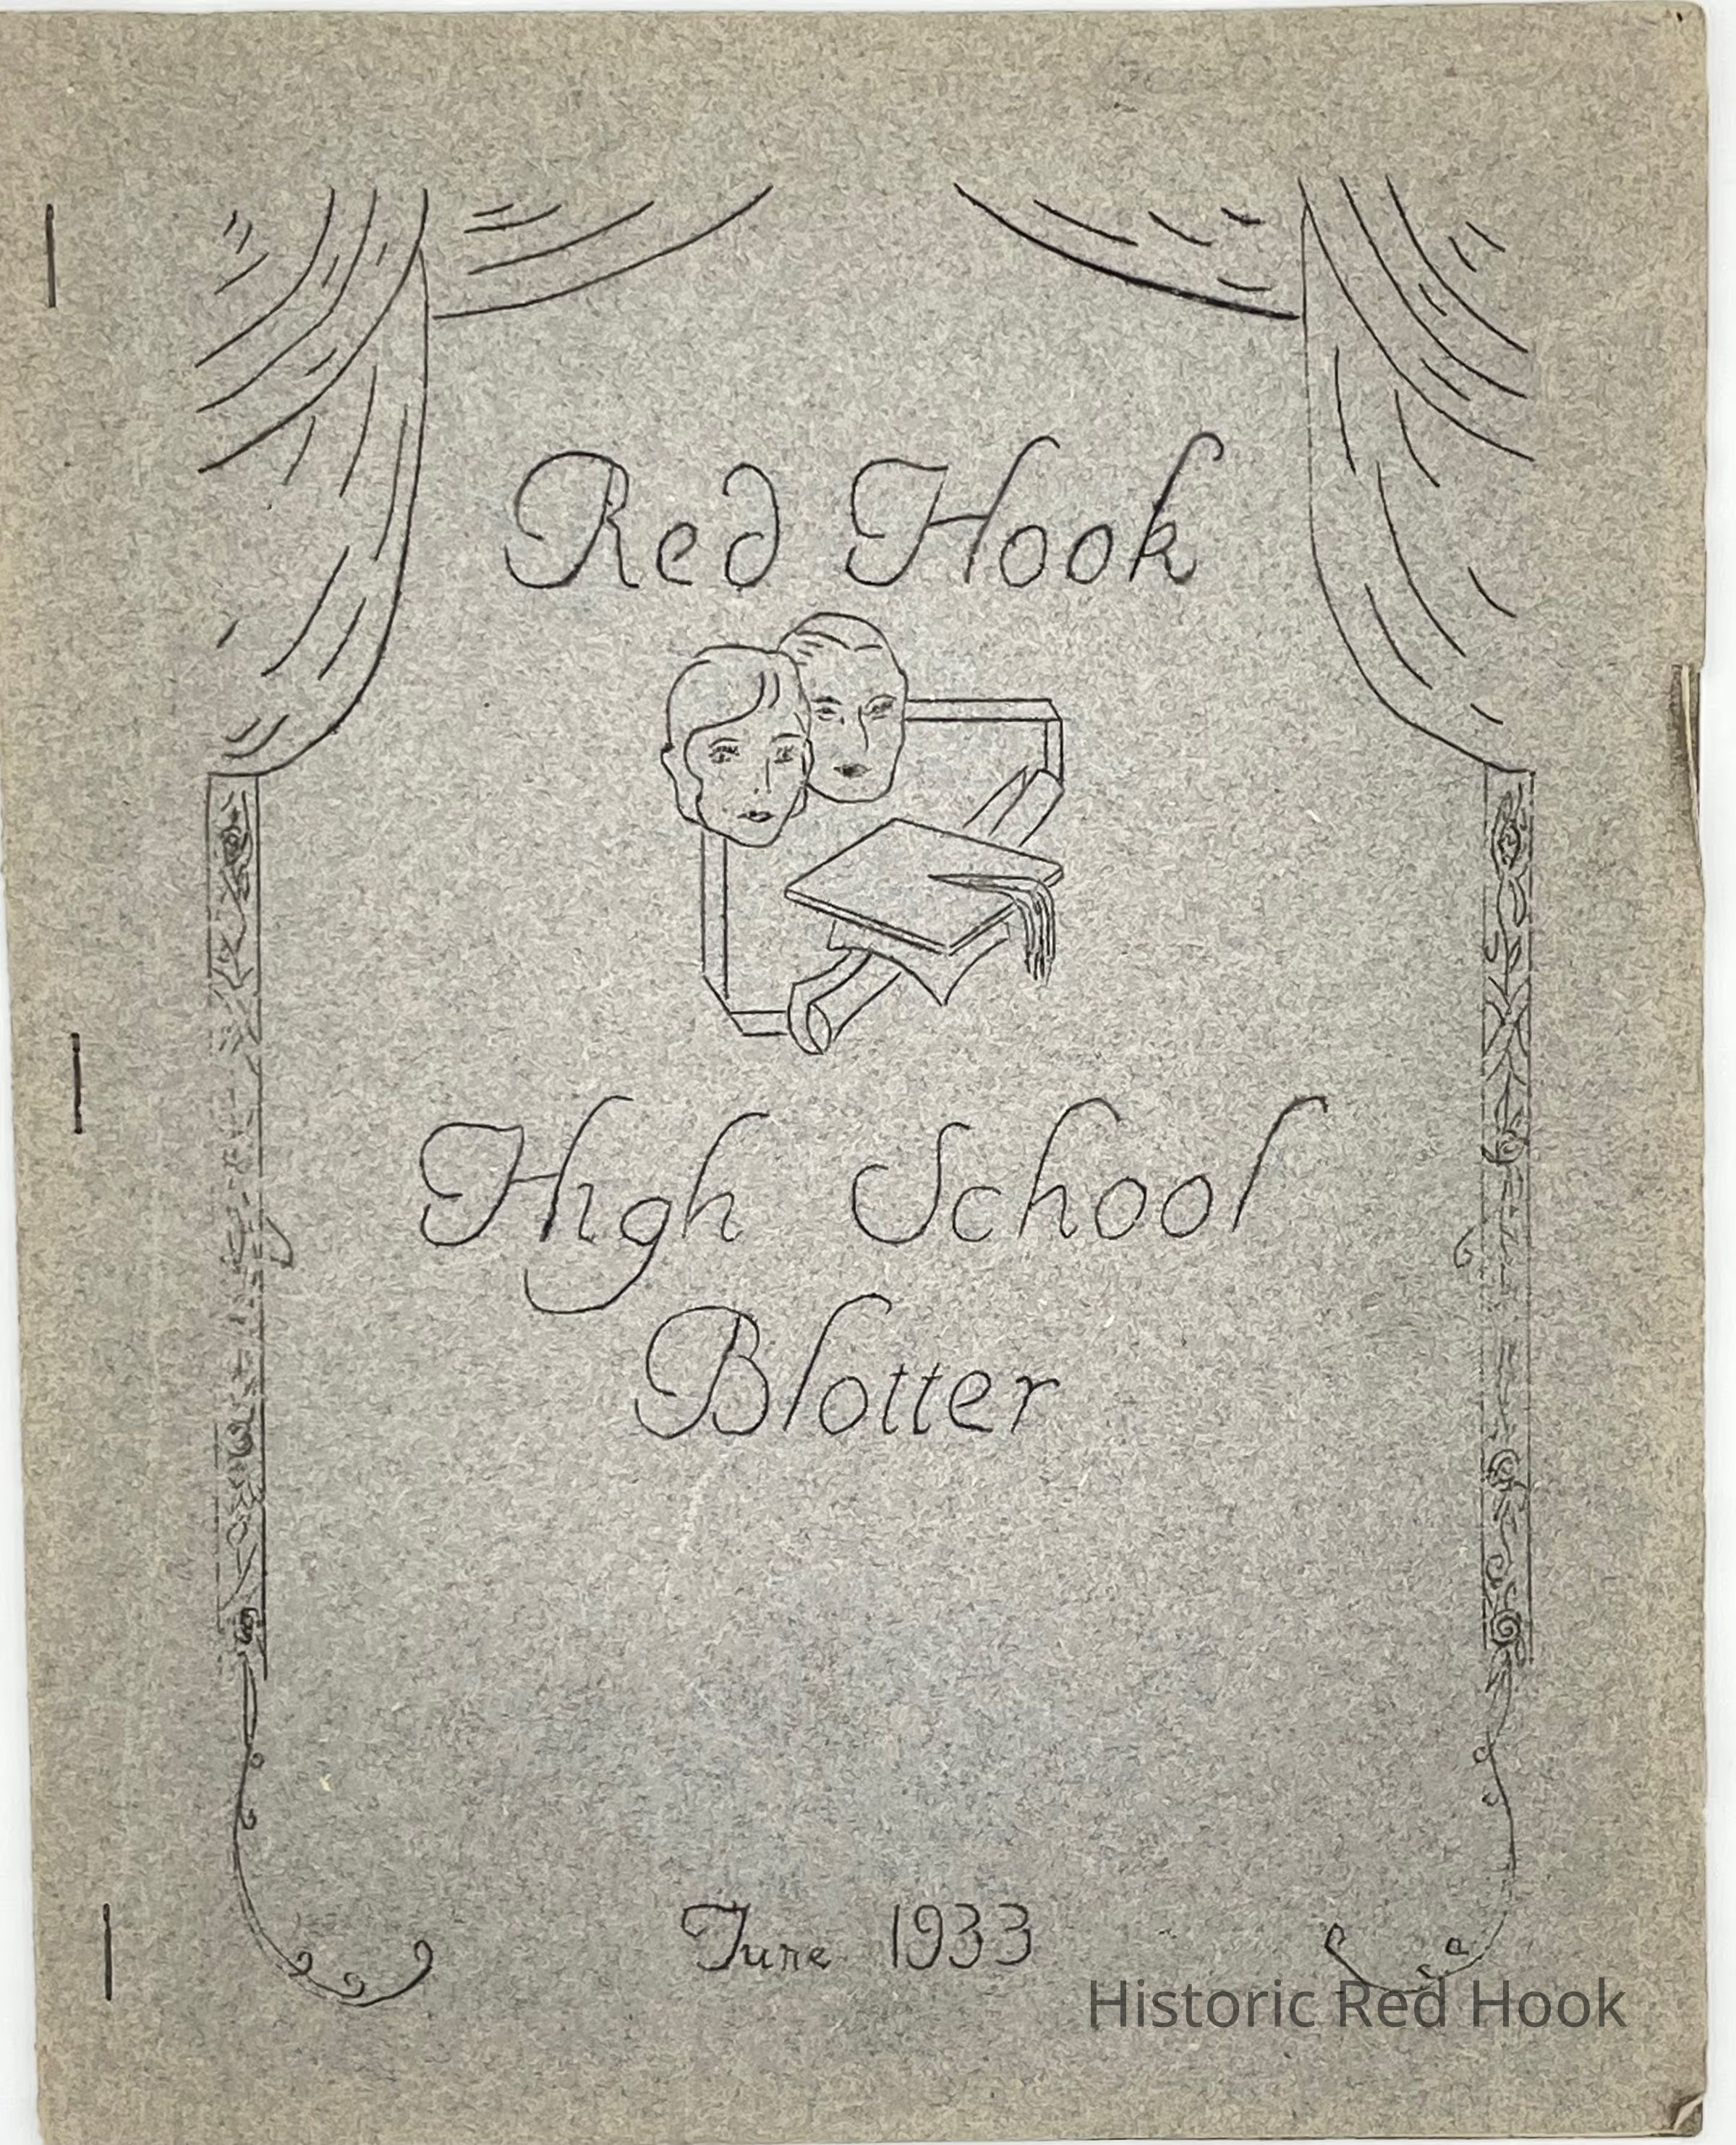 Red Hook
High School
Blotter
June 1933
Historic Red Hook